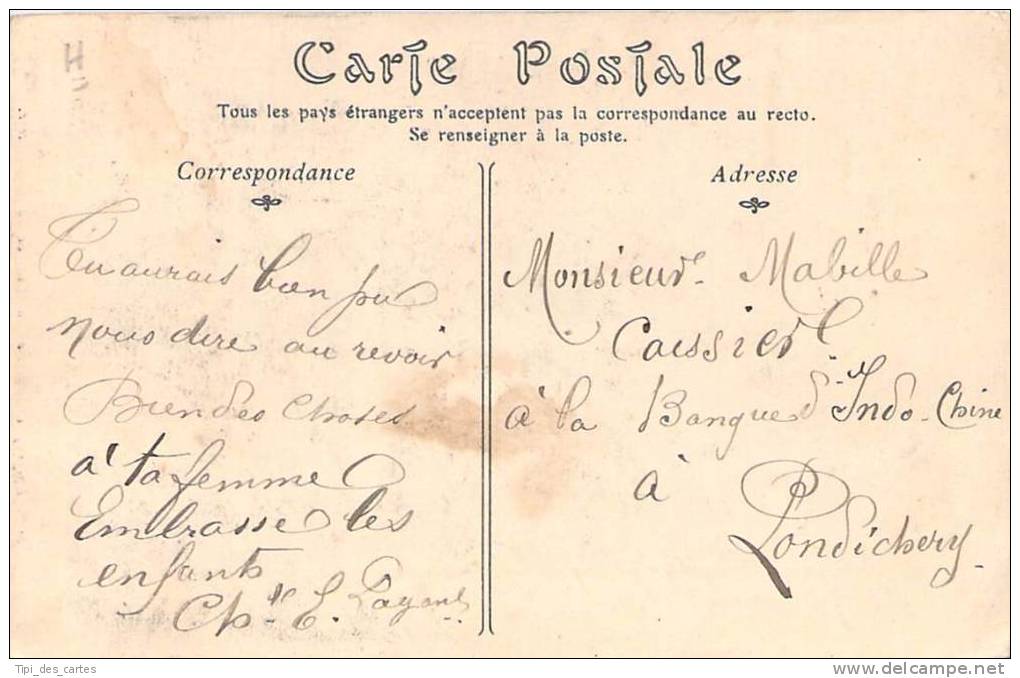 Carte Postale
Tous les pays étrangers n'acceptent pas la correspondance au recto.
Se renseigner à la poste.
Correspondance
Tu aurais bien pu
nous dire au revoir
Bien des choses
a' ta femme
Embrasse les
enfants
Ch. E.
Adresse
Monsieur Mabille
Caissier
à la Banque d'Indo-Chine
à
Pondichery
Tipi_des_cartes
www.delcampe.net